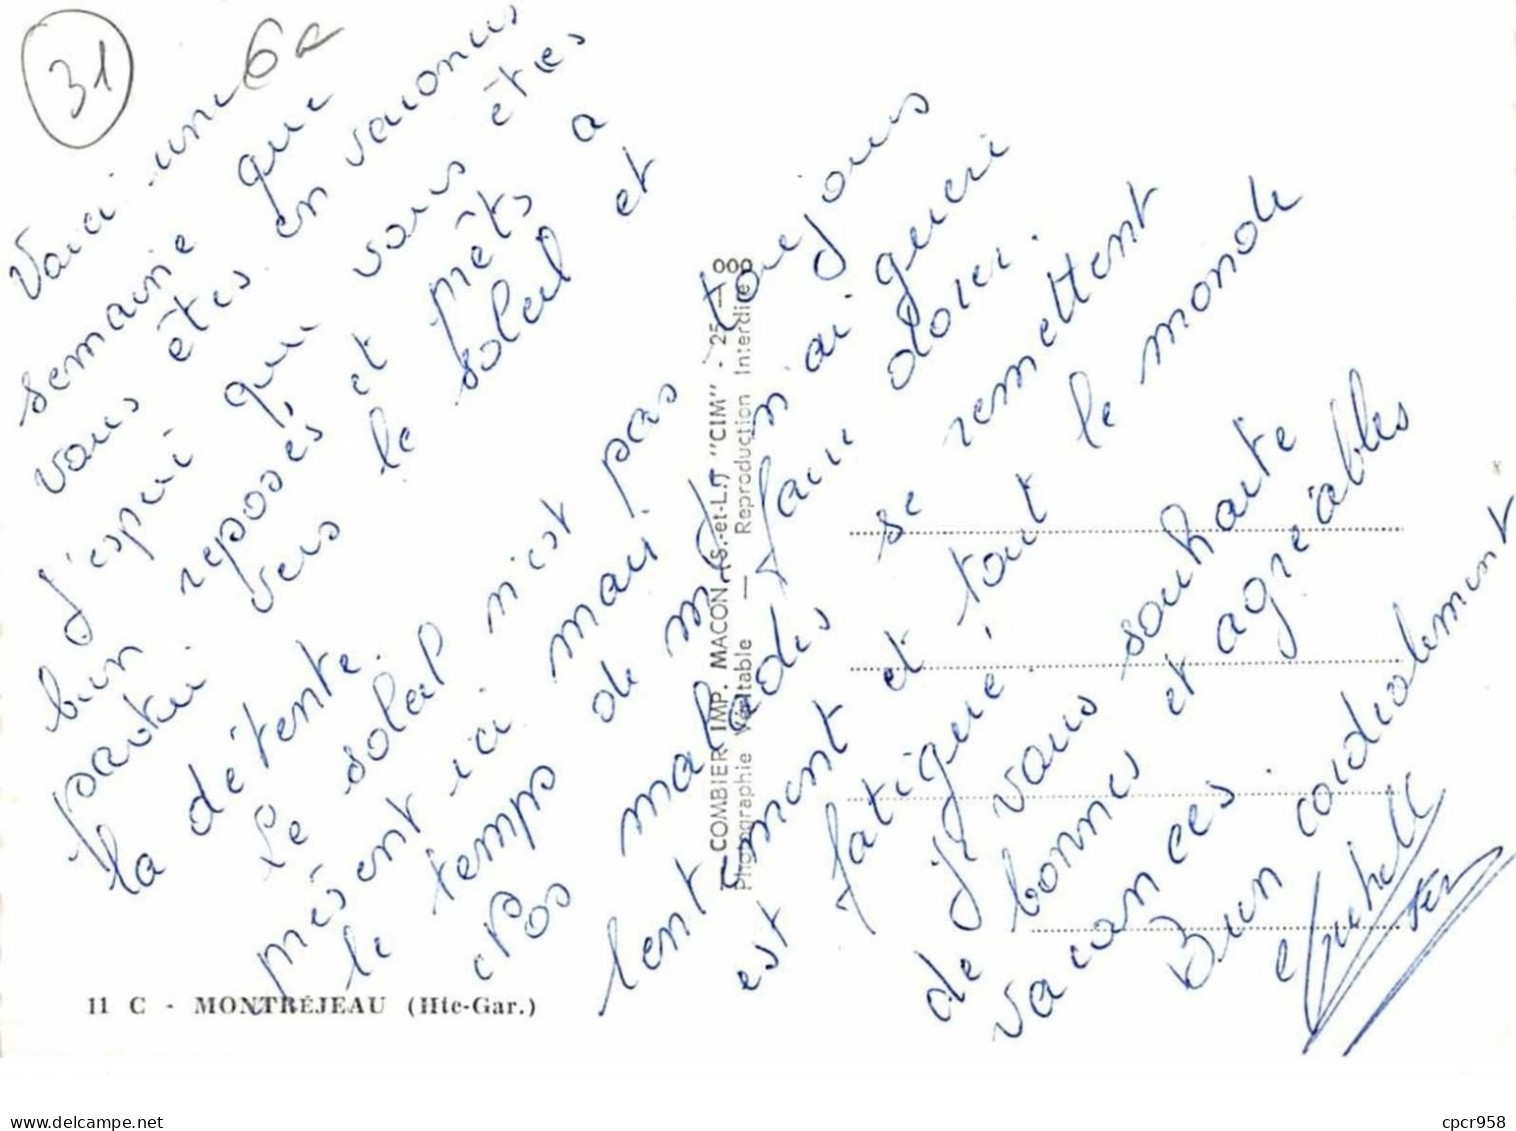 31
6
Voici une
semaine que
vous êtes en vacances
J'espère que vous êtes
bien reposés et prêts a
partir vers le soleil et
la détente.
Le soleil n'est pas toujours
présent ici mais
le temps de m'ai guéri
Nos malades faire doren.
lentement se remettent
est et tout le monde
fatigué.
Je vous souhaite
de bonnes et agréables
vacances.
Bien cordialement
11 C - MONTRÉJEAU (Hte-Gar.)
COMBIER IMP. MACON (S.-et-L.) "CIM" - 25 -
Photographie Véritable — Reproduction Interdite
delcampe.net
cpcr958